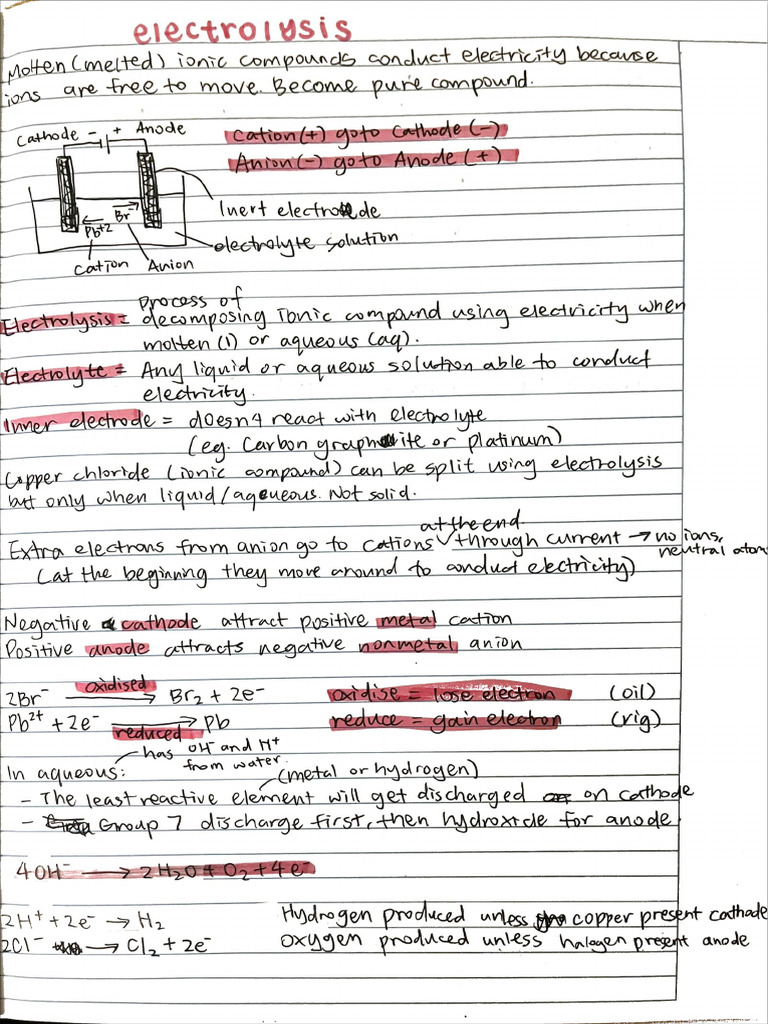 electrolysis
Molten (melted) ionic compounds conduct electricity because
ions are free to move. Become pure compound.
Cathode - + Anode
Cation (+) go to Cathode (-)
Anion (-) go to Anode (+)
Inert electrode
Br⁻
Pb⁺²
electrolyte solution
cation Anion
process of
Electrolysis = decomposing Ionic compound using electricity when
molten (l) or aqueous (aq).
Electrolyte = Any liquid or aqueous solution able to conduct
electricity.
Inner electrode = doesn4 react with electrolyte
(eg. Carbon graphite or platinum)
Copper chloride (ionic compound) can be split using electrolysis
but only when liquid/aqeueous. Not solid.
at the end
Extra electrons from anion go to cations through current → no ions,
neutral atom
(at the beginning they move around to conduct electricity)
Negative cathode attract positive metal cation
Positive anode attracts negative nonmetal anion
oxidised
2Br⁻ → Br₂ + 2e⁻ oxidise = lose electron (oil)
Pb²⁺ + 2e⁻ → Pb reduce = gain electron (rig)
reduced
has OH⁻ and H⁺
from water
In aqueous: (metal or hydrogen)
- The least reactive element will get discharged on cathode
- Group 7 discharge first, then hydroxide for anode
4OH⁻ → 2H₂O + O₂ + 4e⁻
2H⁺ + 2e⁻ → H₂ Hydrogen produced unless copper present cathode
2Cl⁻ → Cl₂ + 2e⁻ oxygen produced unless halogen present anode